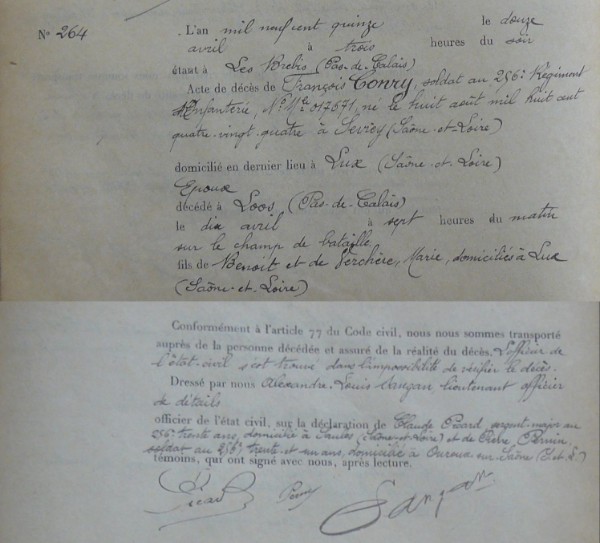 N° 264
L'an mil neuf cent quinze le douze
avril à trois heures du soir
étant à Les Brebis (Pas-de-Calais)
Acte de décès de François Conry, soldat au 256e Régiment
d'Infanterie, N° Mle 017671, né le huit août mil huit cent
quatre-vingt-quatre à Sevrey (Saône-et-Loire)
domicilié en dernier lieu à Lux (Saône-et-Loire)
Epoux
décédé à Loos (Pas-de-Calais)
le dix avril à sept heures du matin
sur le champ de bataille
fils de Benoit et de Verchère, Marie, domiciliés à Lux
(Saône-et-Loire)
Conformément à l'article 77 du Code civil, nous nous sommes transporté
auprès de la personne décédée et assuré de la réalité du décès. L'officier de
l'état-civil s'est trouvé dans l'impossibilité de vérifier le décès.
Dressé par nous Alexandre-Louis Sangan lieutenant officier
de détails
officier de l'état civil, sur la déclaration de Claude Picard, sergent-major au
256e trente ans, domicilié à (Saône-et-Loire) et de Pierre Perrin,
soldat au 256e, trente et un ans, domicilié à Ouroux sur Saône (S.et.L.)
témoins, qui ont signé avec nous, après lecture.
Picard Perrin Sangan